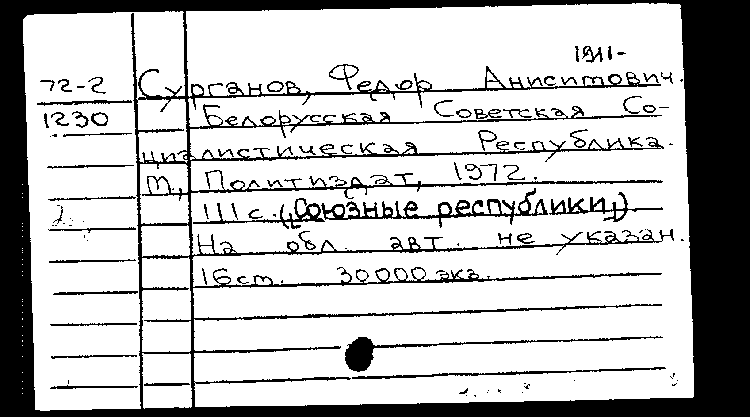 1911-
72-2 Сурганов, Федор Анисимович.
1230 Белорусская Советская Со-
циалистическая Республика.
М., Политиздат, 1972.
111 с. („Союзные республики")
На обл. авт. не указан.
16 см. 30000 экз.